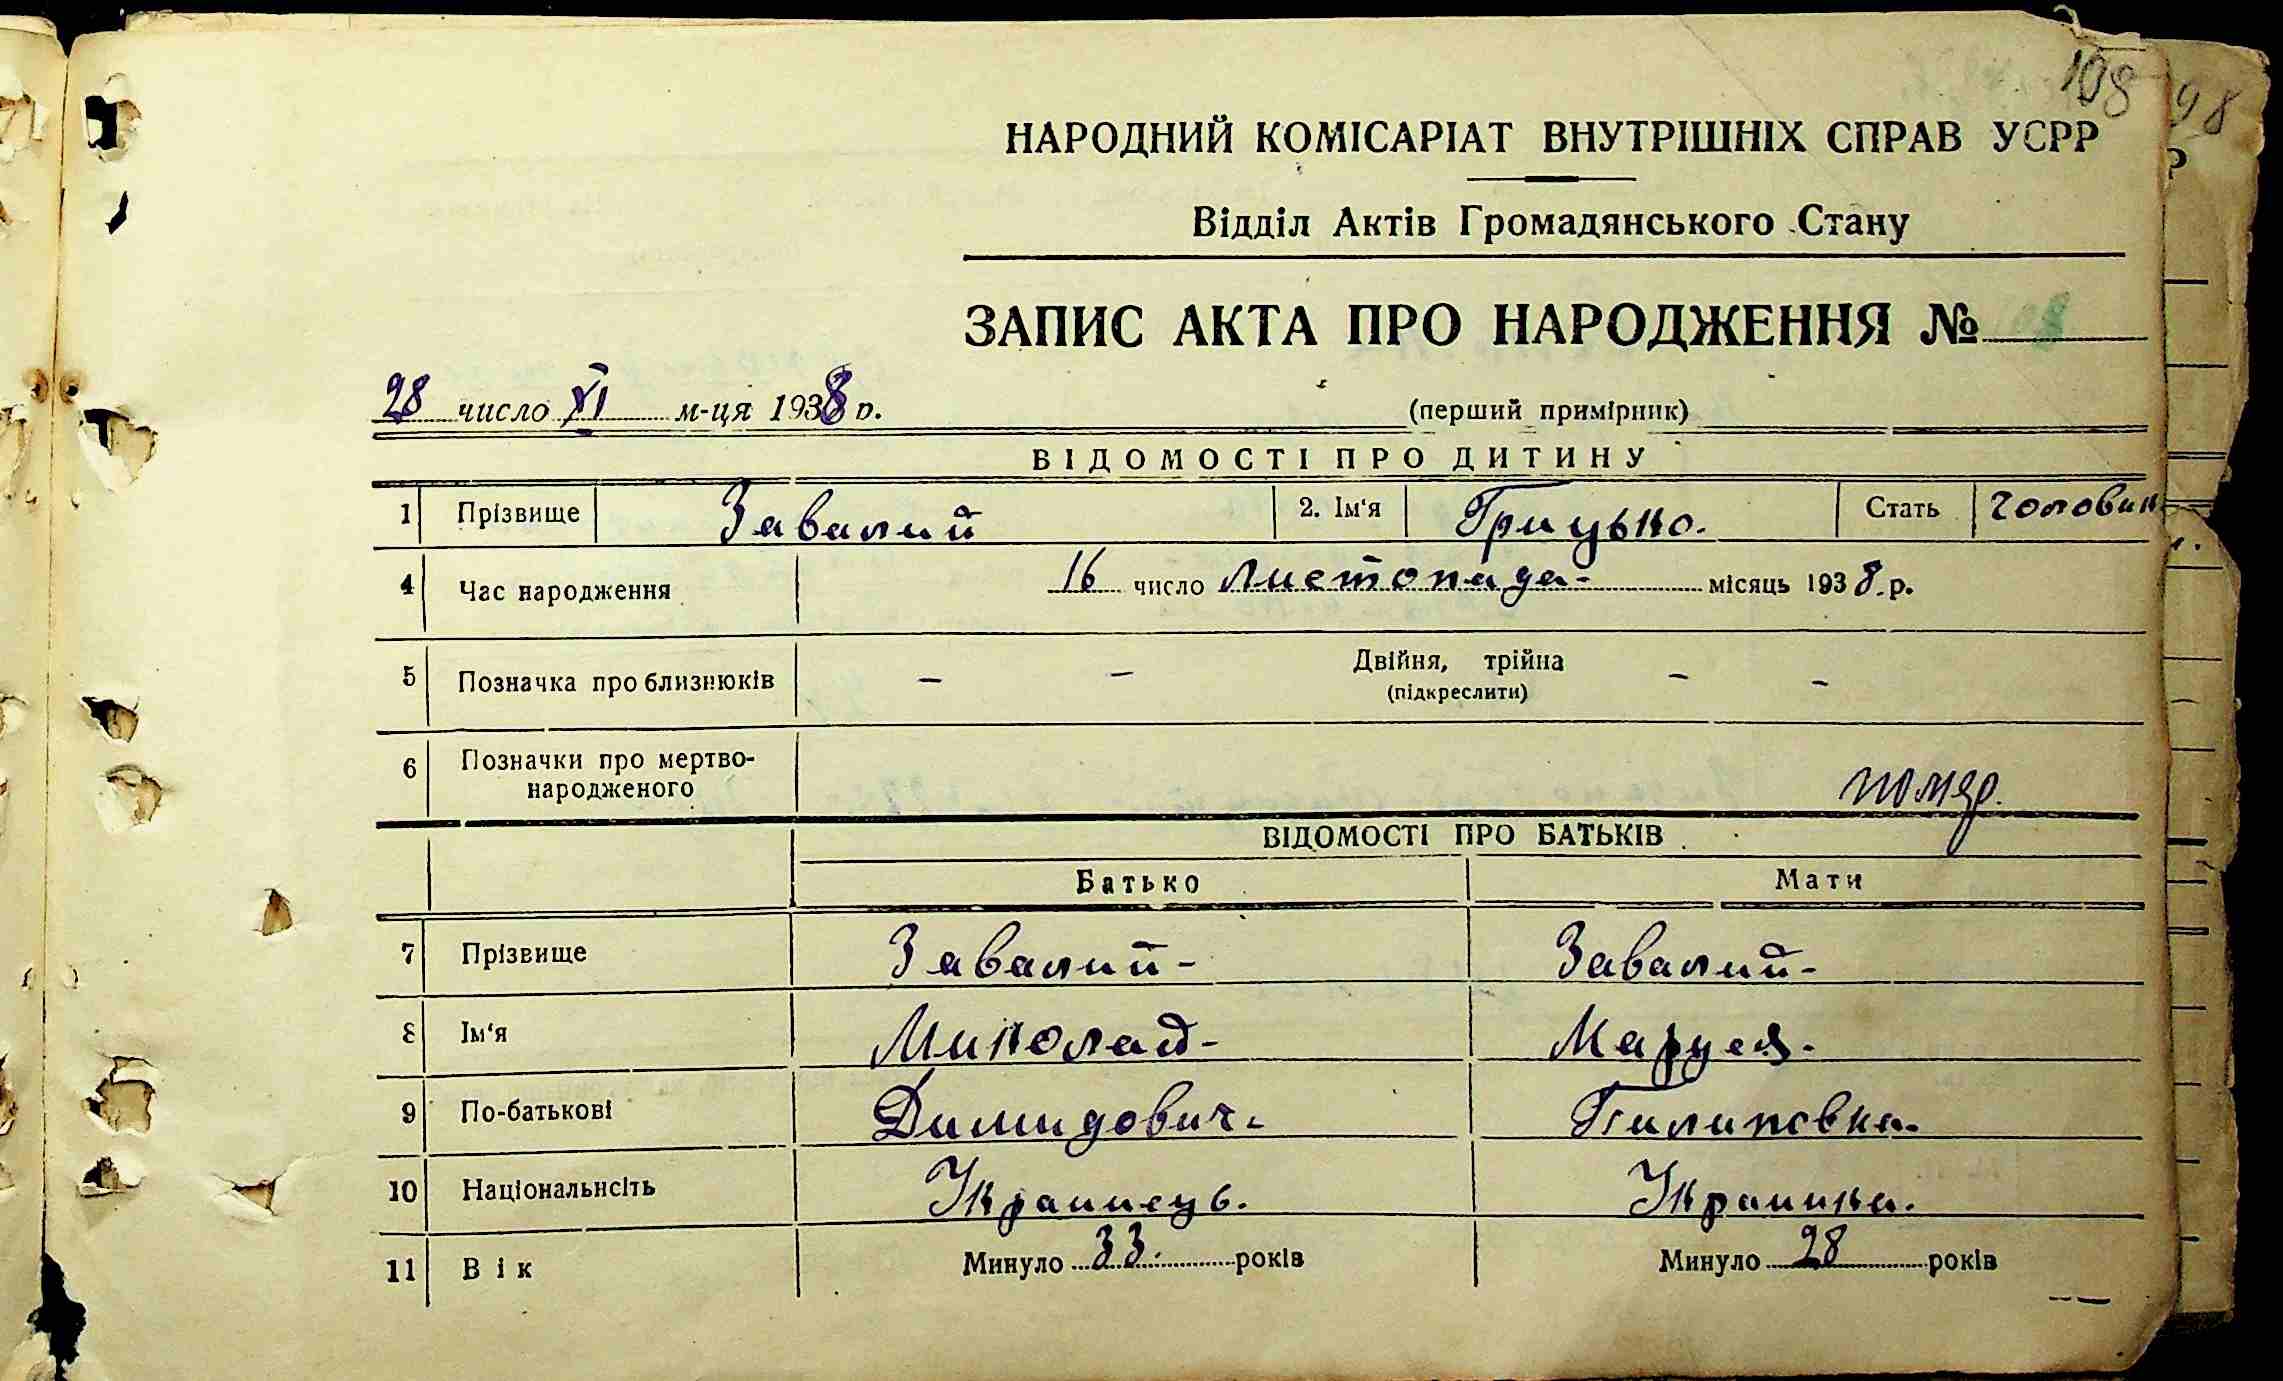 108
98
НАРОДНИЙ КОМІСАРІАТ ВНУТРІШНІХ СПРАВ УСРР
Відділ Актів Громадянського Стану
ЗАПИС АКТА ПРО НАРОДЖЕННЯ №
28 число XI м-ця 1938 р.
(перший примірник)
ВІДОМОСТІ ПРО ДИТИНУ
1 Прізвище Завалий 2. Ім'я Грицько. Стать чолович
4 Час народження 16 число Листопада- місяць 1938.р.
5 Позначка про близнюків - - Двійня, трійна - -
(підкреслити)
6 Позначки про мертво-
народженого
ВІДОМОСТІ ПРО БАТЬКІВ
Батько Мати
7 Прізвище Завалий- Завалий-
8 Ім'я Миколай- Маруся.
9 По-батькові Димидович- Пилиповна.
10 Національнсіть Украинець. Украинка.
11 Вік Минуло 33. років Минуло 28 років